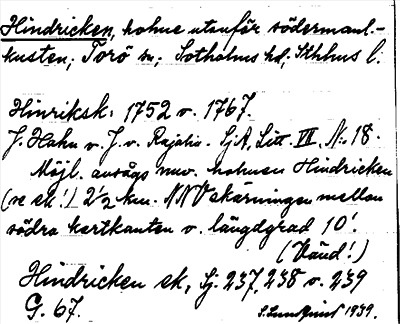 Hindricken, holme utanför södermanl.-
kusten; Torö sn; Sotholms hd; Sthlms l.
Hinriksk: 1752 o. 1767.
J. Hahn o. J. v. Rajalin. SjA, Litt. III, No 18.
Möjl. avsågs nuv. holmen Hindricken
(se ek!) 2½ km. NNV skärningen mellan
södra kartkanten o. längdgrad 10'.
(Vänd!)
Hindricken ek, Sj. 237, 238 o. 239
G. 67.
S. Lundqvist 1939.